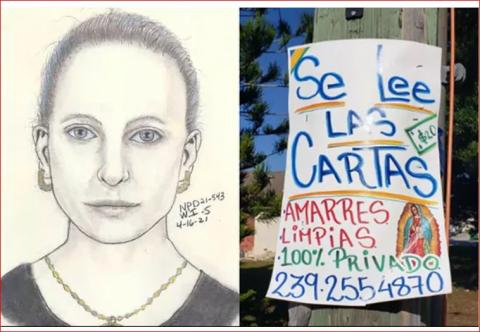 NPD21-543
W.I-S
4-16-21
Se Lee
LAS
$20
CARTAS
·AMARRES
·LIMPIAS
·100% PRIVADO
239.2554870